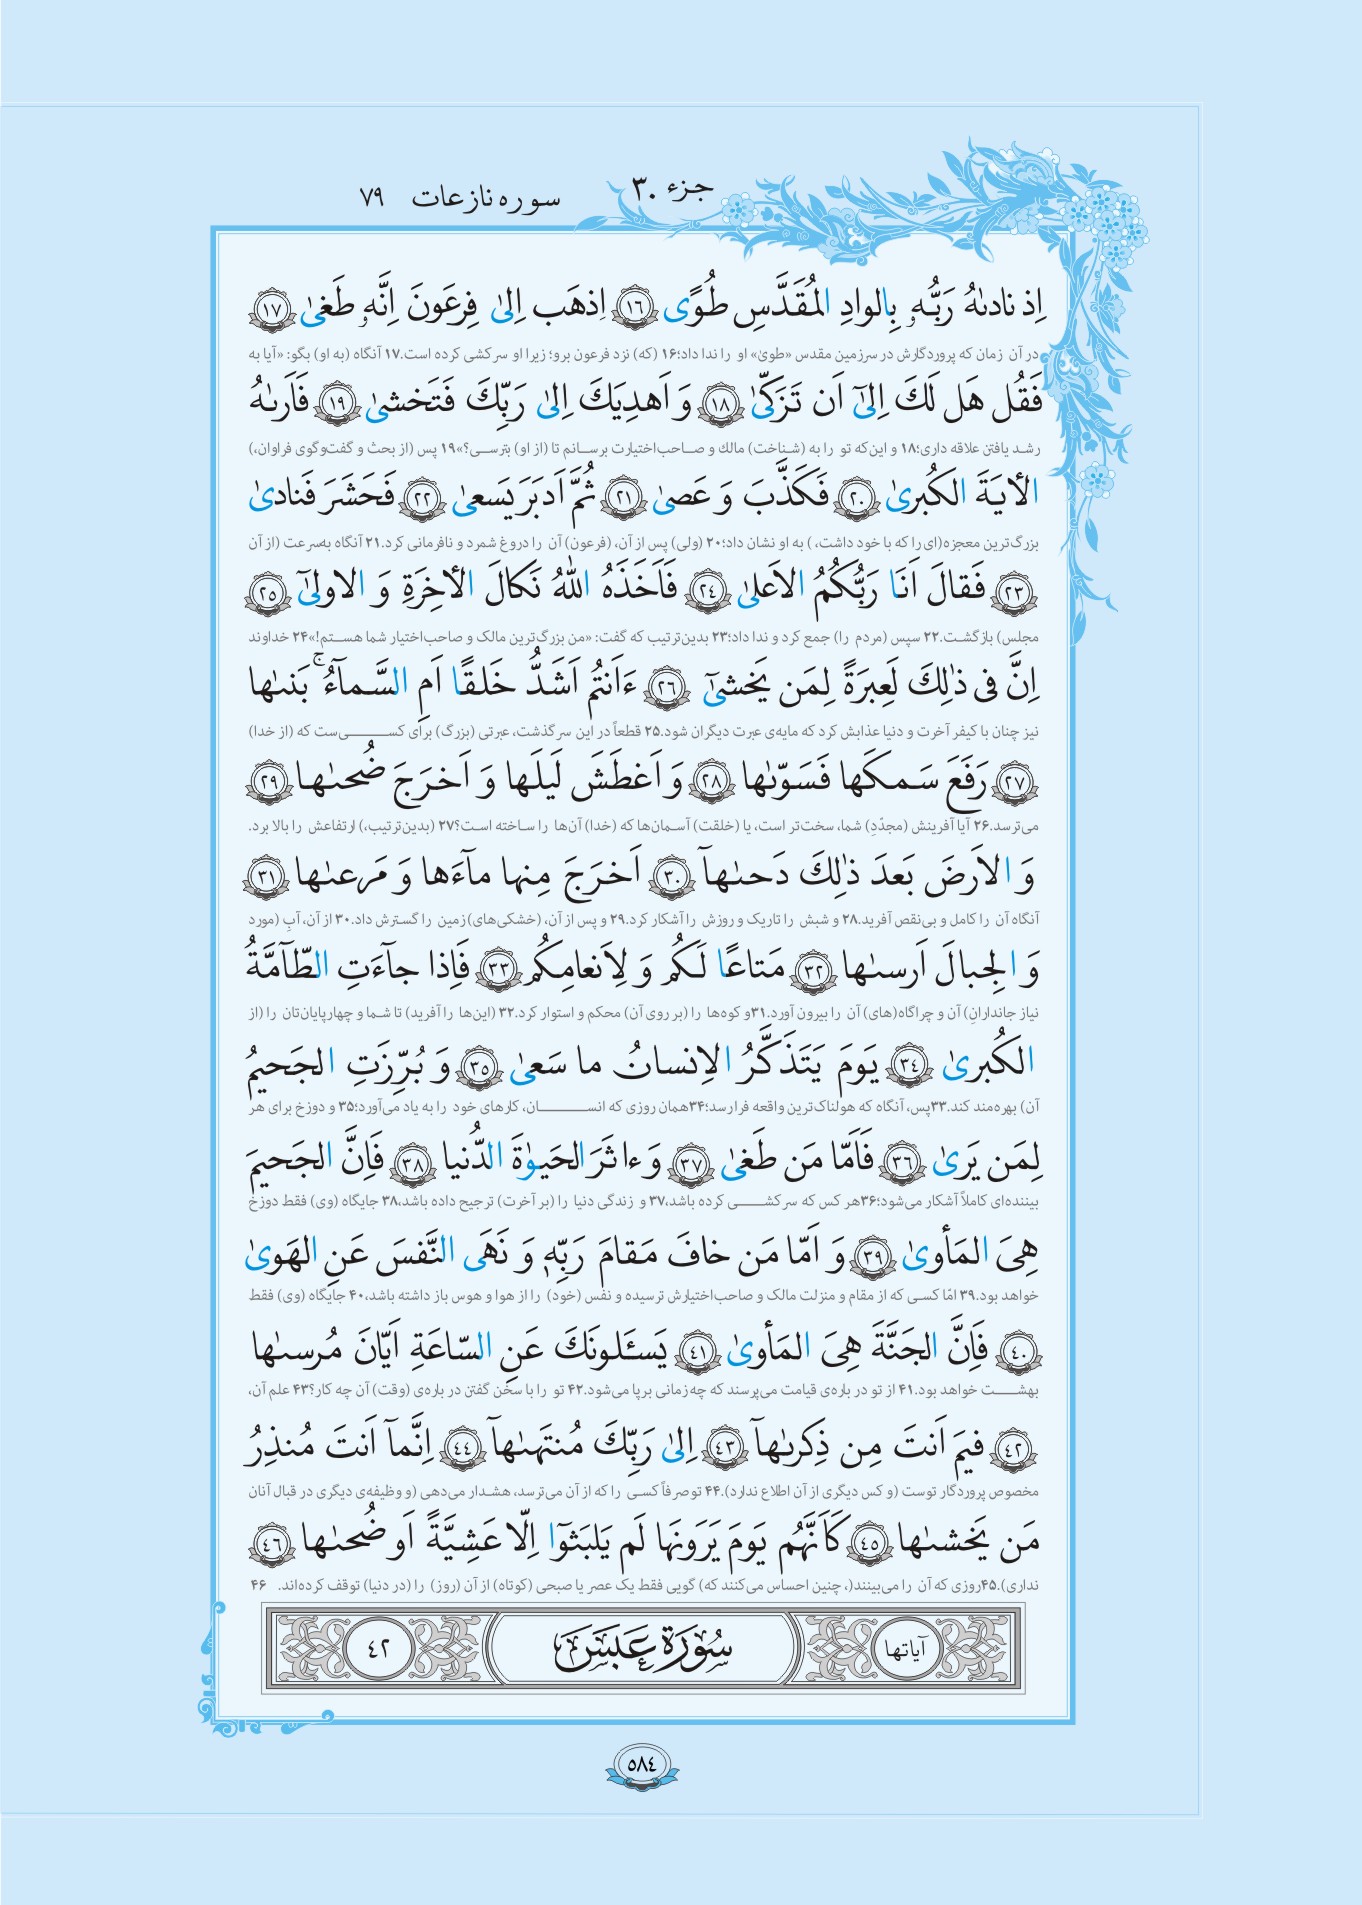 جزء ۳۰ سوره نازعات ۷۹
اِذ نادىٰهُ رَبُّهٗ بِالوادِ المُقَدَّسِ طُوًى ﴿١٦﴾ اِذهَب اِلىٰ فِرعَونَ اِنَّهٗ طَغىٰ ﴿١٧﴾
در آن زمان که پروردگارش در سرزمین مقدس «طویٰ» او را ندا داد؛۱۶ (که) نزد فرعون برو؛ زیرا او سرکشی کرده است.۱۷ آنگاه (به او) بگو: «آیا به
فَقُل هَل لَكَ اِلىٰٓ اَن تَزَكّىٰ ﴿١٨﴾ وَ اَهدِيَكَ اِلىٰ رَبِّكَ فَتَخشىٰ ﴿١٩﴾ فَاَرىٰهُ
رشد یافتن علاقه داری؛۱۸ و این‌که تو را به (شناخت) مالك و صاحب‌اختیارت برسانم تا (از او) بترسی؟»۱۹ پس (از بحث و گفت‌وگوی فراوان،)
الأيَةَ الكُبرىٰ ﴿٢٠﴾ فَكَذَّبَ وَ عَصىٰ ﴿٢١﴾ ثُمَّ اَدبَرَ يَسعىٰ ﴿٢٢﴾ فَحَشَرَ فَنادىٰ
بزرگ‌ترین معجزه(ای را که با خود داشت، ) به او نشان داد؛۲۰ (ولی) پس از آن، (فرعون) آن را دروغ شمرد و نافرمانی کرد.۲۱ آنگاه به‌سرعت (از آن
﴿٢٣﴾ فَقالَ اَنَا رَبُّكُمُ الاَعلىٰ ﴿٢٤﴾ فَاَخَذَهُ اللّٰهُ نَكالَ الأخِرَةِ وَ الاولىٰٓ ﴿٢٥﴾
مجلس) بازگشت.۲۲ سپس (مردم را) جمع کرد و ندا داد؛۲۳ بدین‌ترتیب که گفت: «من بزرگ‌ترین مالک و صاحب‌اختیار شما هستم!»۲۴ خداوند
اِنَّ فى ذٰلِكَ لَعِبرَةً لِمَن يَخشىٰٓ ﴿٢٦﴾ ءَاَنتُم اَشَدُّ خَلقًا اَمِ السَّمآءُ ۚ بَنىٰها
نیز چنان با کیفر آخرت و دنیا عذابش کرد که مایه‌ی عبرت دیگران شود.۲۵ قطعاً در این سرگذشت، عبرتی (بزرگ) برای کسی‌ست که (از خدا)
﴿٢٧﴾ رَفَعَ سَمكَها فَسَوّىٰها ﴿٢٨﴾ وَ اَغطَشَ لَيلَها وَ اَخرَجَ ضُحىٰها ﴿٢٩﴾
می‌ترسد.۲۶ آیا آفرینش (مجدّدِ) شما، سخت‌تر است، یا (خلقت) آسمان‌ها که (خدا) آن‌ها را ساخته است؟۲۷ (بدین‌ترتیب،) ارتفاعش را بالا برد.
وَ الاَرضَ بَعدَ ذٰلِكَ دَحىٰهآ ﴿٣٠﴾ اَخرَجَ مِنها مآءَها وَ مَرعىٰها ﴿٣١﴾
آنگاه آن را کامل و بی‌نقص آفرید.۲۸ و شبش را تاریک و روزش را آشکار کرد.۲۹ و پس از آن، (خشکی‌های) زمین را گسترش داد.۳۰ از آن، آبِ (مورد
وَ الجِبالَ اَرسىٰها ﴿٣٢﴾ مَتاعًا لَكُم وَ لِاَنعامِكُم ﴿٣٣﴾ فَاِذا جآءَتِ الطّآمَّةُ
نیاز جانداران) آن و چراگاه(های) آن را بیرون آورد.۳۱و کوه‌ها را (بر روی آن) محکم و استوار کرد.۳۲ (این‌ها را آفرید) تا شما و چهارپایان‌تان را (از
الكُبرىٰ ﴿٣٤﴾ يَومَ يَتَذَكَّرُ الاِنسانُ ما سَعىٰ ﴿٣٥﴾ وَ بُرِّزَتِ الجَحيمُ
آن) بهره‌مند کند.۳۳پس، آنگاه که هولناک‌ترین واقعه فرا رسد؛۳۴همان روزی که انسان، کارهای خود را به یاد می‌آورد؛۳۵ و دوزخ برای هر
لِمَن يَرىٰ ﴿٣٦﴾ فَاَمّا مَن طَغىٰ ﴿٣٧﴾ وَ ءاثَرَ الحَيوٰةَ الدُّنيا ﴿٣٨﴾ فَاِنَّ الجَحيمَ
بیننده‌ای کاملاً آشکار می‌شود؛۳۶هر کس که سرکشی کرده باشد،۳۷ و زندگی دنیا را (بر آخرت) ترجیح داده باشد،۳۸ جایگاه (وی) فقط دوزخ
هِىَ المَأوىٰ ﴿٣٩﴾ وَ اَمّا مَن خافَ مَقامَ رَبِّهٖ وَ نَهَى النَّفسَ عَنِ الهَوىٰ
خواهد بود.۳۹ امّا کسی که از مقام و منزلت مالک و صاحب‌اختیارش ترسیده و نفس (خود) را از هوا و هوس باز داشته باشد،۴۰ جایگاه (وی) فقط
﴿٤٠﴾ فَاِنَّ الجَنَّةَ هِىَ المَأوىٰ ﴿٤١﴾ يَسئَلونَكَ عَنِ السّاعَةِ اَيّانَ مُرسىٰها
بهشت خواهد بود.۴۱ از تو در باره‌ی قیامت می‌پرسند که چه زمانی برپا می‌شود.۴۲ تو را با سخن گفتن در باره‌ی (وقت) آن چه کار؟۴۳ علم آن،
﴿٤٢﴾ فيمَ اَنتَ مِن ذِكرىٰهآ ﴿٤٣﴾ اِلىٰ رَبِّكَ مُنتَهىٰهآ ﴿٤٤﴾ اِنَّمآ اَنتَ مُنذِرُ
مخصوص پروردگار توست (و کس دیگری از آن اطلاع ندارد).۴۴ تو صرفاً کسی را که از آن می‌ترسد، هشدار می‌دهی (و وظیفه‌ی دیگری در قبال آنان
مَن يَخشىٰها ﴿٤٥﴾ كَاَنَّهُم يَومَ يَرَونَها لَم يَلبَثوٓا اِلّا عَشِيَّةً اَو ضُحىٰها ﴿٤٦﴾
نداری).۴۵روزی که آن را می‌بینند(، چنین احساس می‌کنند که) گویی فقط یک عصر یا صبحی (کوتاه) از آن (روز) را (در دنیا) توقف کرده‌اند. ۴۶
آیاتها سُورَة عَبَسَ ٤٢
٥٨٤